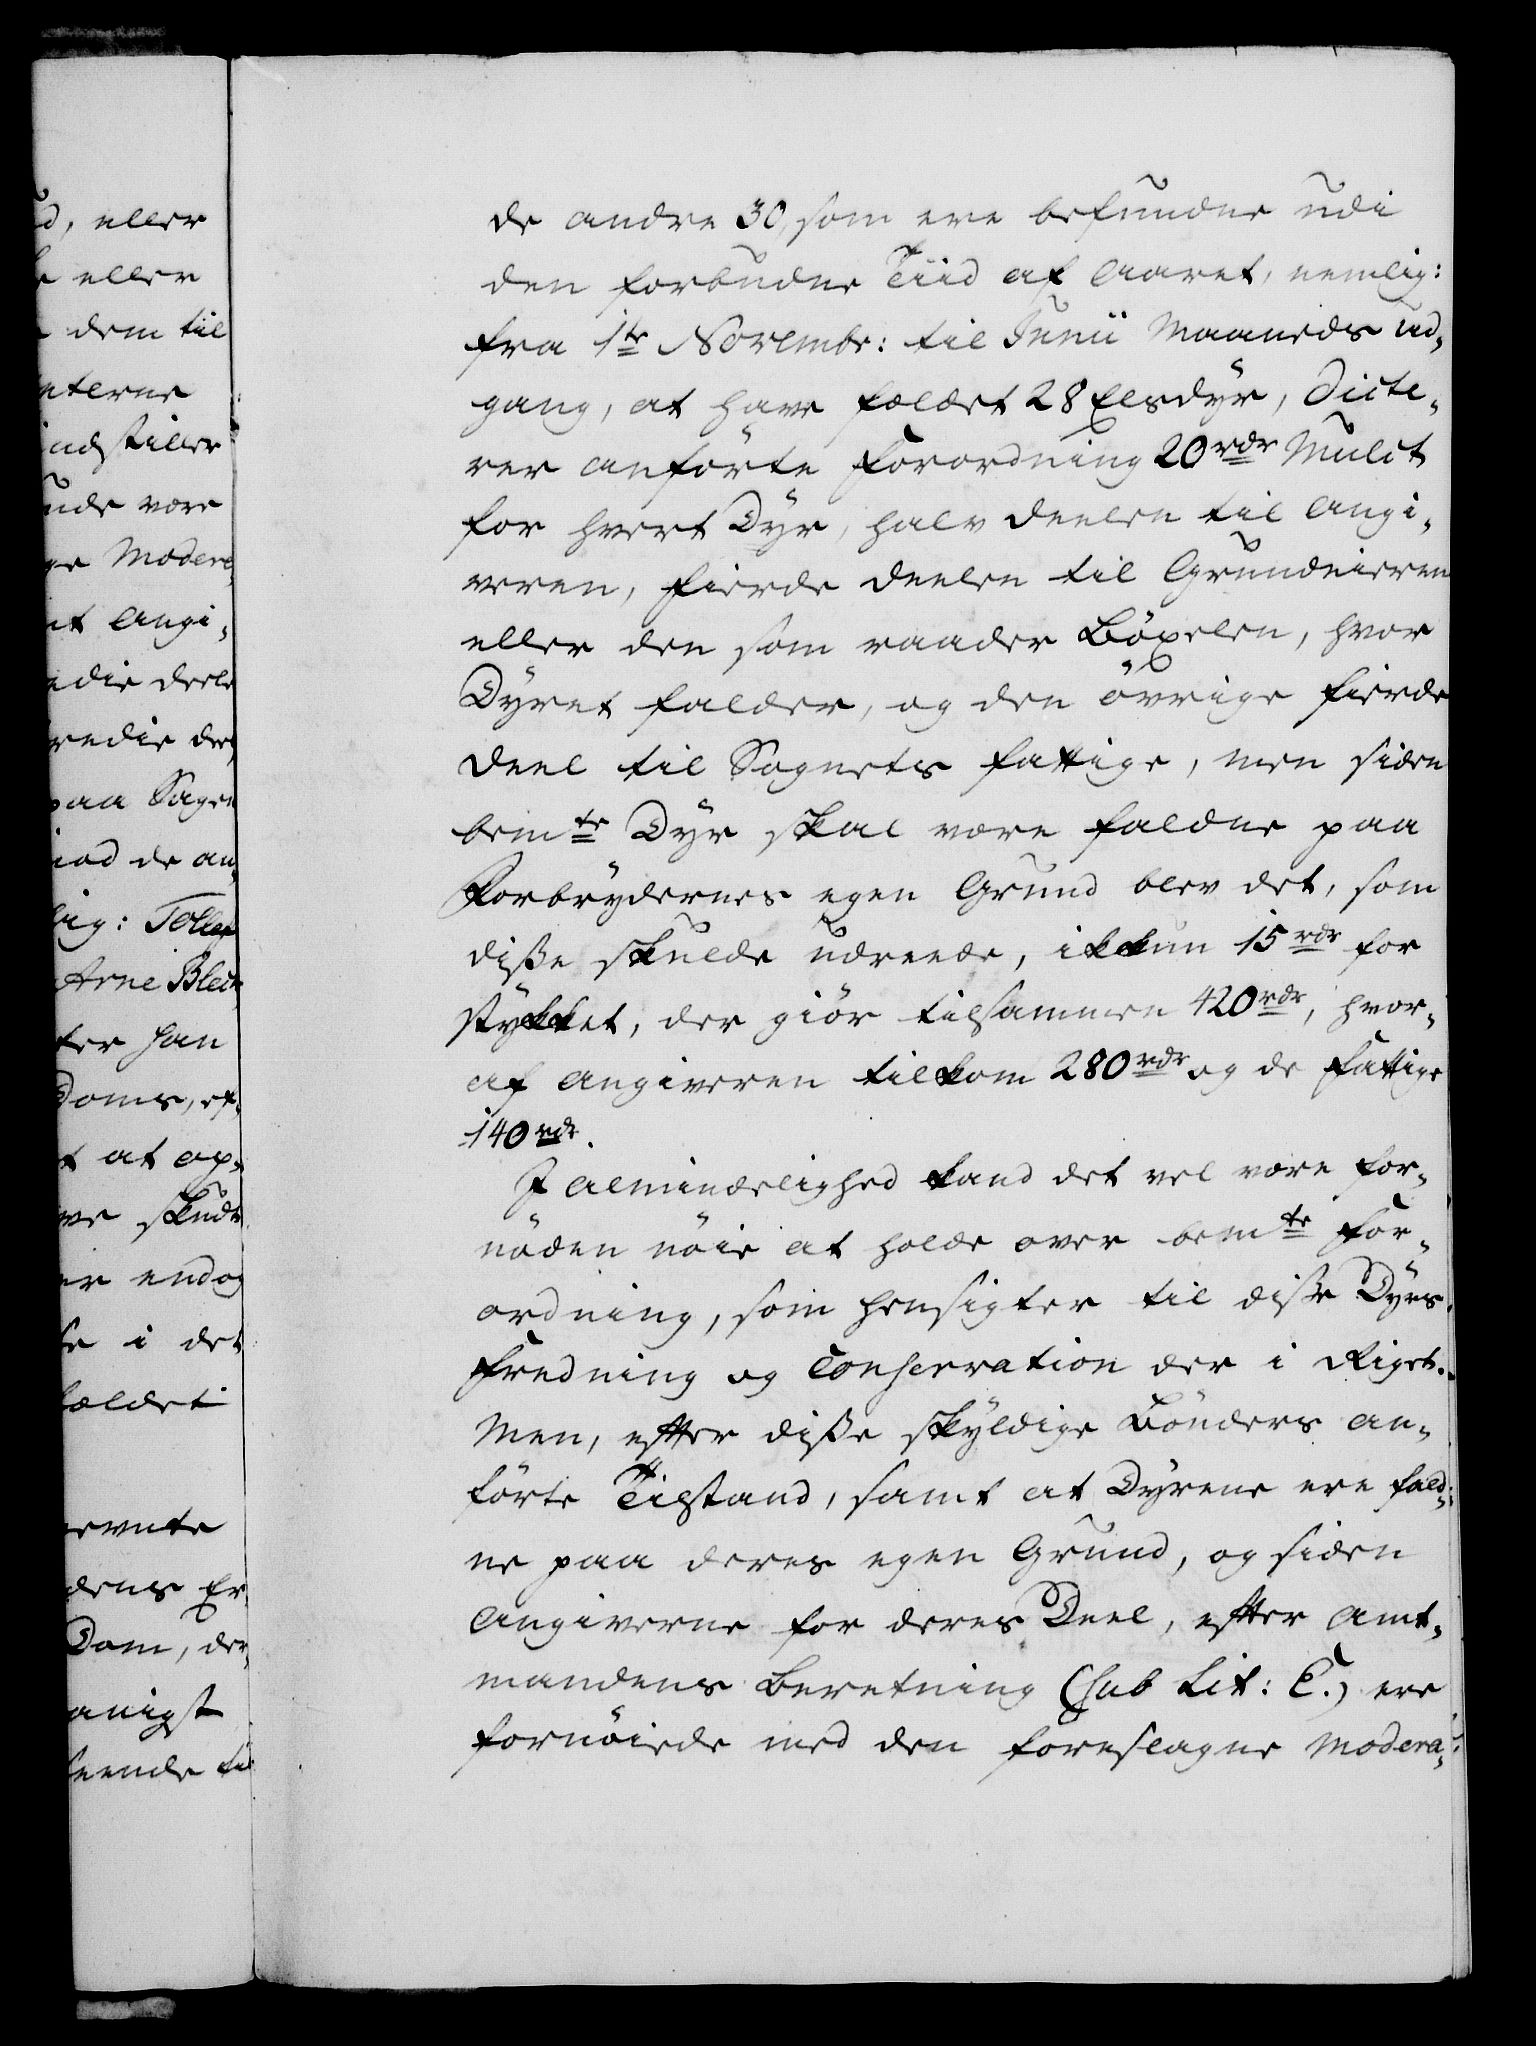 d, eller
e eller
dem til
nterne
indstiller
unde være
ge Modera¬
nt Angi¬
edie deele
redie deel
paa Sagen
iod de an¬
lig: Tolle
Arne Bleck
ter han
Doms, ef¬
t at op¬
ve skudt
er endog
se i det
fældet
nevnte
dens Er
Dom, der
anigst
seende til
de andre 30, som ere befundne udi
den forbudne Tiid af Aaret, nemlig:
fra 1te Novembr: til Junii Maaneds ud¬
gang, at have fældet 28 Elsdÿr, dicte¬
rer anförte Forordning 20 rdr Mulct
for hvert Dÿr, halv Deelen til Angi¬
veren, fierde Deelen til Grundeieren
eller den som raader Böxelen, hvor
Dÿret falder, og den övrige fierde
Deel til Sognets fattige, men siden
bemte Dÿr skal være faldne paa
Forbrÿdernes egen Grund blev det, som
disse skulde udreede, ikkun 15 rdr for
stÿkket, der giör tilsammen 420 rdr, hvor¬
af Angiveren tilkom 280 rdr og de Fattige
140 rdr.
I Almindelighed kand det vel være for¬
nöden nöie at holde over bemte For¬
ordning, som hensigter til disse Dÿrs
Fredning og Conservation der i Riget.
Men, efter disse skÿldige Bönders an¬
förte Tilstand, samt at Dÿrene ere fald¬
ne paa deres egen Grund, og siden
Angiverne for deres Deel, efter Amt¬
mandens Beretning (sub Lit: C.) ere
fornöiede med den foreslagne Modera¬